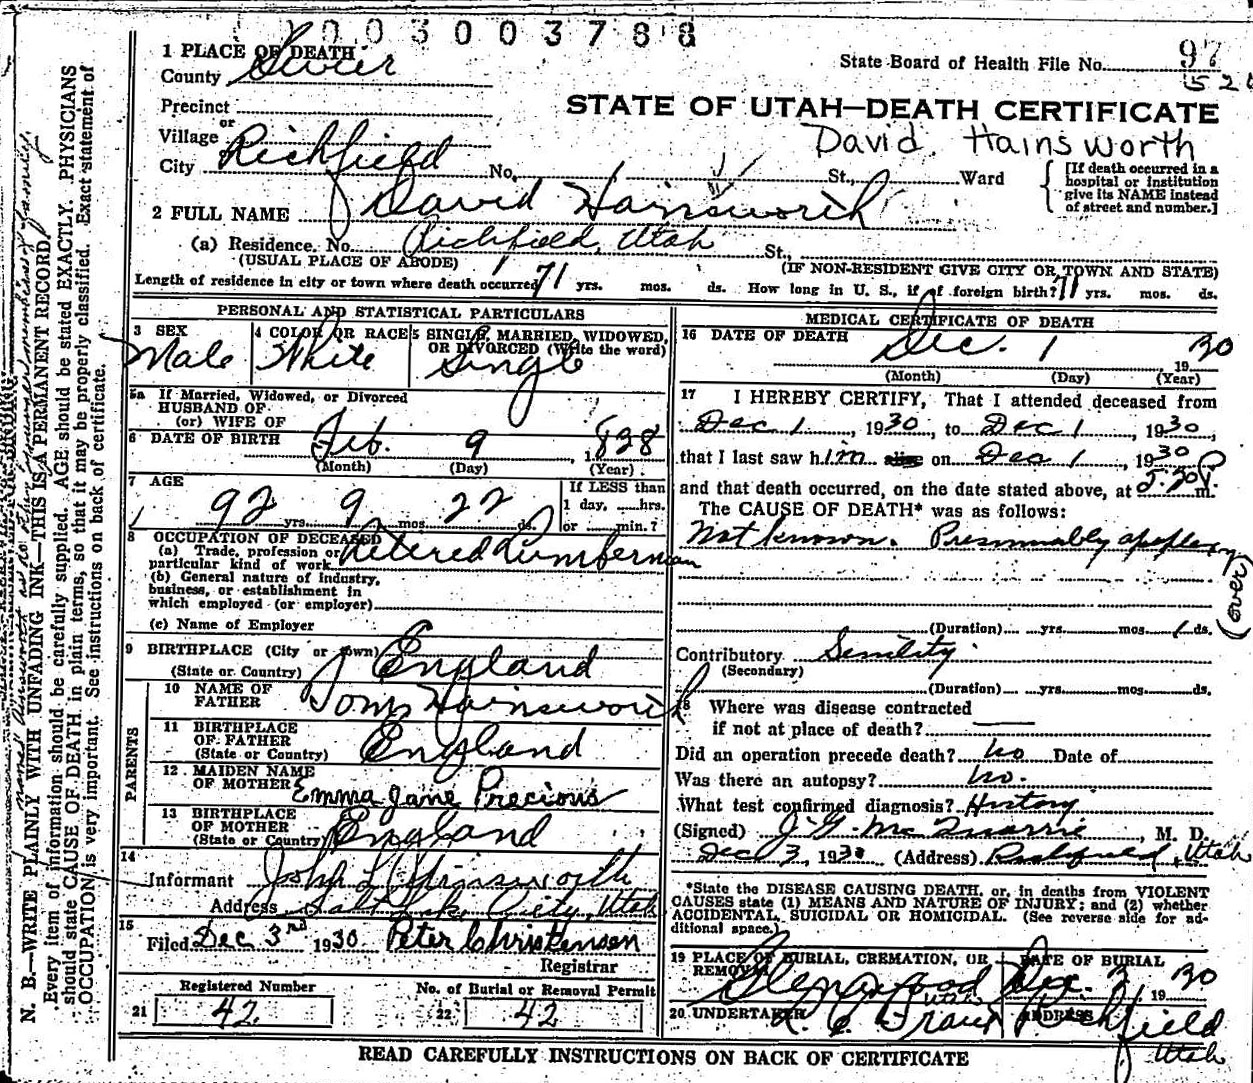 003003788
1 PLACE OF DEATH
County Sevier
State Board of Health File No. 97
Precinct
or
Village
City Richfield No. St., Ward
STATE OF UTAH—DEATH CERTIFICATE
David Hainsworth
[If death occurred in a hospital or institution give its NAME instead of street and number.]
2 FULL NAME David Hainsworth
(a) Residence. No. Richfield, Utah St.,
(USUAL PLACE OF ABODE) (IF NON-RESIDENT GIVE CITY OR TOWN AND STATE)
Length of residence in city or town where death occurred 71 yrs. mos. ds. How long in U. S., if of foreign birth? 71 yrs. mos. ds.
PERSONAL AND STATISTICAL PARTICULARS
3 SEX
Male
4 COLOR OR RACE
White
5 SINGLE, MARRIED, WIDOWED, OR DIVORCED (Write the word)
Single
5a If Married, Widowed, or Divorced
HUSBAND OF
(or) WIFE OF
6 DATE OF BIRTH Feb. 9, 1838
(Month) (Day) (Year)
7 AGE
92 yrs. 9 mos. 22 ds.
If LESS than
1 day, ......hrs.
or ......min.?
8 OCCUPATION OF DECEASED
(a) Trade, profession or
particular kind of work Retired Lumberman
(b) General nature of industry,
business, or establishment in
which employed (or employer)
(c) Name of Employer
9 BIRTHPLACE (City or town)
(State or Country) England
PARENTS
10 NAME OF
FATHER Tom Hainsworth
11 BIRTHPLACE
OF FATHER
(State or Country) England
12 MAIDEN NAME
OF MOTHER Emma Jane Precious
13 BIRTHPLACE
OF MOTHER
(State or Country) England
14
Informant John L Hainsworth
Address Salt Lake City, Utah
15
Filed Dec 3rd 1930 Peter Christensen
Registrar
Registered Number
21 42
No. of Burial or Removal Permit
22 42
MEDICAL CERTIFICATE OF DEATH
16 DATE OF DEATH Dec. 1 1930
(Month) (Day) (Year)
17 I HEREBY CERTIFY, That I attended deceased from
Dec 1, 1930, to Dec 1, 1930,
that I last saw him alive on Dec 1, 1930
and that death occurred, on the date stated above, at 5:20 P m.
The CAUSE OF DEATH* was as follows:
Not known. Presumably apoplexy
(over)
(Duration) yrs. mos. 1 ds.
Contributory Senility
(Secondary)
(Duration) yrs. mos. ds.
18 Where was disease contracted
if not at place of death?
Did an operation precede death? No Date of
Was there an autopsy? No.
What test confirmed diagnosis? History
(Signed) J. G. McQuarrie, M. D.
Dec 3, 1930 (Address) Richfield, Utah
*State the DISEASE CAUSING DEATH, or, in deaths from VIOLENT
CAUSES state (1) MEANS AND NATURE OF INJURY; and (2) whether
ACCIDENTAL, SUICIDAL OR HOMICIDAL. (See reverse side for ad-
ditional space.)
19 PLACE OF BURIAL, CREMATION, OR REMOVAL
Glenwood Utah
DATE OF BURIAL
Dec. 3 1930
20 UNDERTAKER
ADDRESS
Richfield Utah
READ CAREFULLY INSTRUCTIONS ON BACK OF CERTIFICATE
N. B.—WRITE PLAINLY WITH UNFADING INK—THIS IS A PERMANENT RECORD.
Every item of information should be carefully supplied. AGE should be stated EXACTLY. PHYSICIANS
should state CAUSE OF DEATH in plain terms, so that it may be properly classified. Exact statement of
OCCUPATION is very important. See instructions on back of certificate.